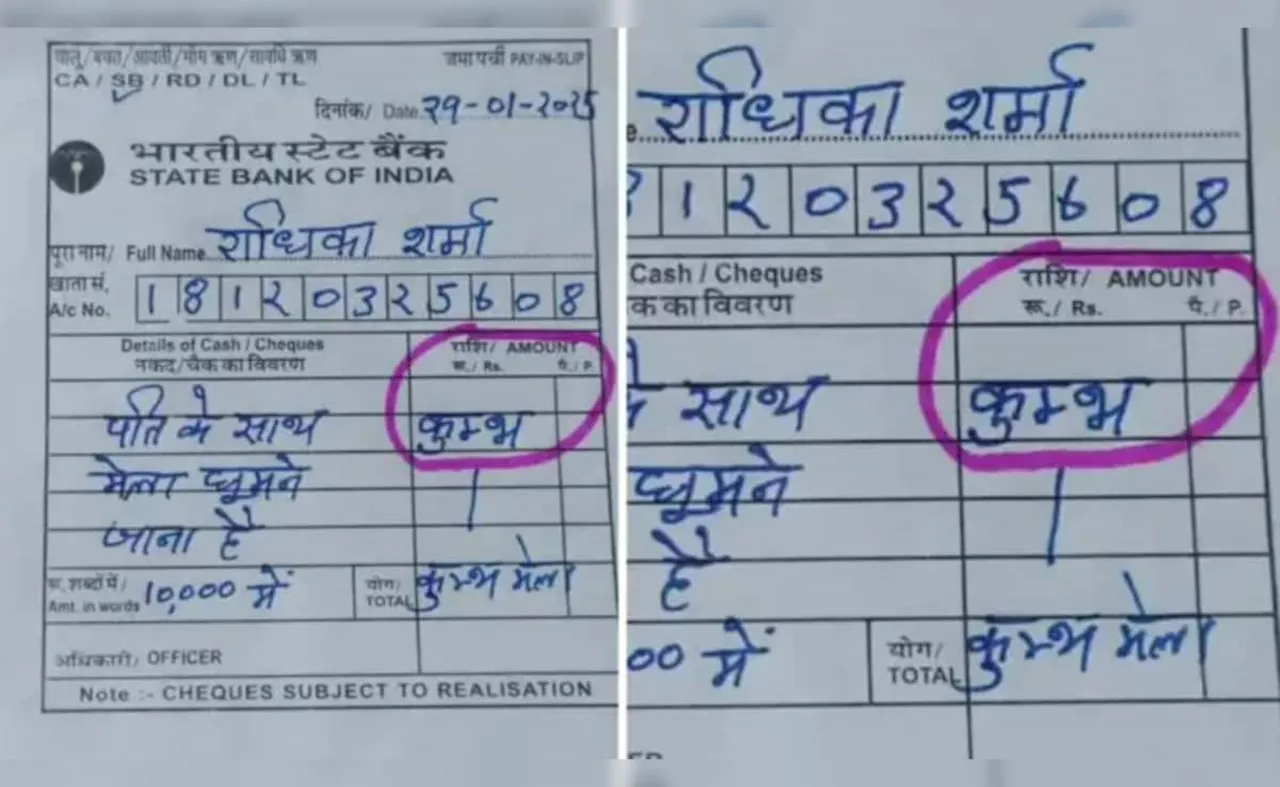 चालू/बचत/आवर्ती/माँग ऋण/सावधि ऋण
जमा पर्ची PAY-IN-SLIP
CA / SB / RD / DL / TL
दिनांक/ Date २9-01-२०२5
भारतीय स्टेट बैंक
STATE BANK OF INDIA
पूरा नाम/ Full Name राधिका शर्मा
खाता सं.
A/c No. 1 8 1 2 0 3 2 5 6 0 8
Details of Cash / Cheques राशि/ AMOUNT
नकद/चैक का विवरण रू./ Rs. पै./ P.
पति के साथ कुम्भ
मेला घूमने
जाना है
रू. शब्दों में/ योग/
Amt. in words 10,000 में TOTAL कुम्भ मेला
अधिकारी/ OFFICER
Note :- CHEQUES SUBJECT TO REALISATION
राधिका शर्मा
1 2 0 3 2 5 6 0 8
Cash / Cheques राशि/ AMOUNT
क का विवरण रू./ Rs. पै./ P.
साथ कुम्भ
घूमने
है
00 में योग/
TOTAL कुम्भ मेला